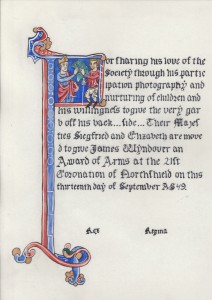 For sharing his love of the
Society through his partic
ipation photography and
nurturing of children and
his willingness to give the very gar
b off his back...side... Their Majes
ties Siegfried and Elizabeth are move
d to give James Wyndover an
Award of Arms at the 21st
Coronation of Northshield on this
thirteenth day of September AS 49.
Rex Regina